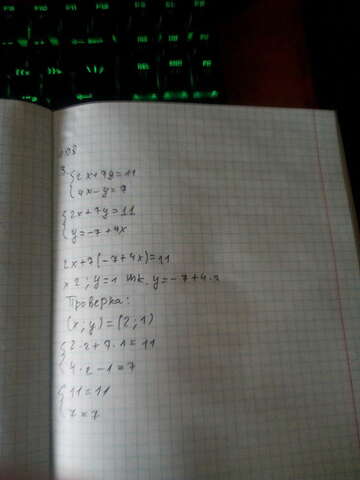 3. {2x+7y=11
{4x-y=7
{2x+7y=11
{y=-7+4x
2x+7(-7+4x)=11
x 2; y=1 тк. y=-7+4·2
Проверка:
(x;y)=(2;1)
{2·2+7·1=11
{4·2-1=7
{11=11
{7=7